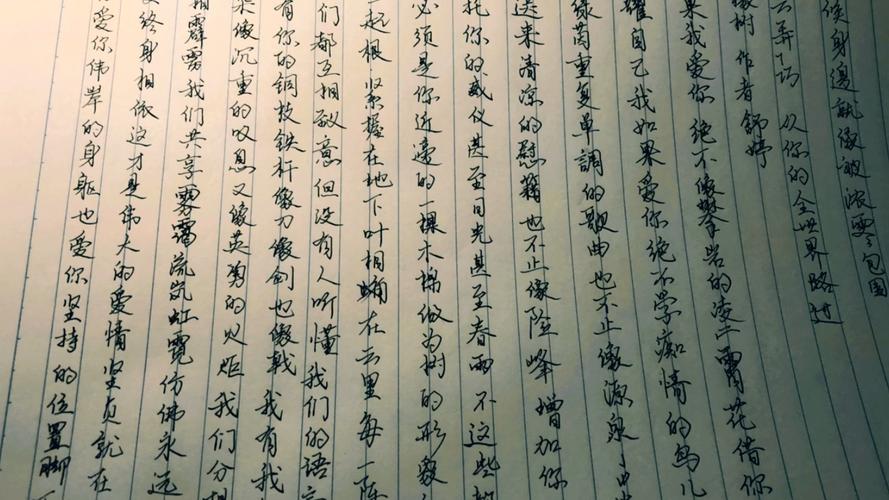 侯身邊就像被浓雲包围
去弄巧 从你的全世界路过
橡树 作者 舒婷
果我爱你 绝不像攀岩的凌霄花借你
耀自己我如果爱你绝不学痴情的鸟儿
绿荫重复单調的歌曲也不止像源泉
送来清凉的慰籍也不止像险峰 增加你
托你的威仪甚至日光甚至春雨 不这些都
必须是你近邊的一棵木棉做为树的形象
一起根 紧握在地下叶相触 在云里每一阵
们都互相致意但没有人听懂我们的语言
有你的铜枝铁杆像刀像剑也像戟 我有我
像沉重的叹息又像英勇的火炬 我们分担
霹雳我们共享雾霭流岚虹霓 仿佛永远
终身相依这才是伟大的爱情坚贞就在
爱你伟岸的身躯也爱你坚持的位置脚